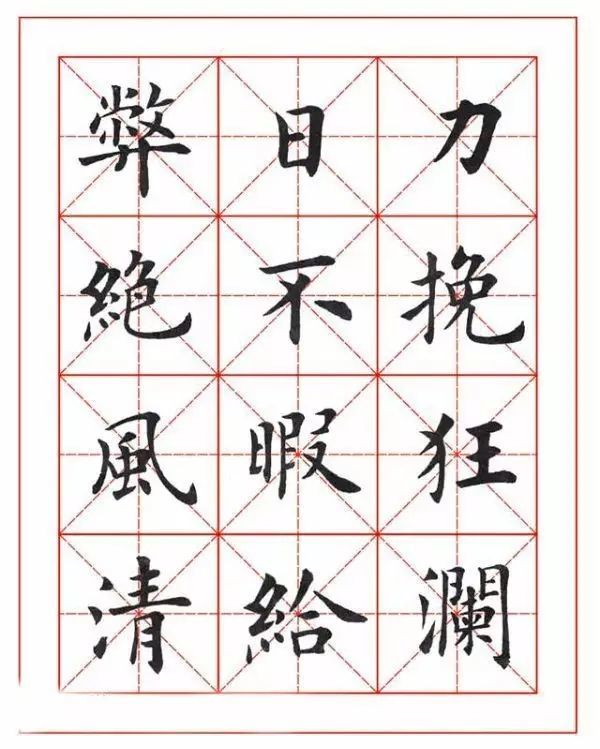 力挽狂瀾
日不暇給
弊絕風清